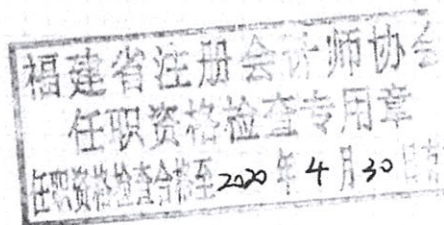 福建省注册会计师协会
任职资格检查专用章
任职资格检查合格至2020年4月30日有